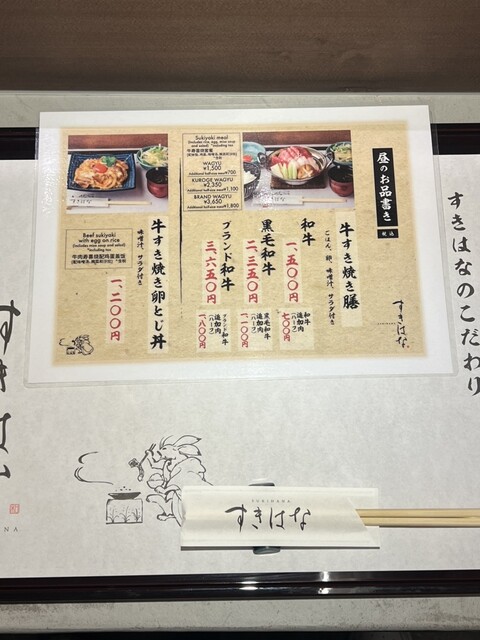 昼のお品書き
税込
牛すき焼き膳
ごはん、卵、味噌汁、サラダ付き
和牛
一、五〇〇円
和牛
追加肉
(ハーフ)
七〇〇円
黒毛和牛
二、三五〇円
黒毛和牛
追加肉
(ハーフ)
一、一〇〇円
ブランド和牛
三、六五〇円
ブランド和牛
追加肉
(ハーフ)
一、八〇〇円
牛すき焼き卵とじ丼
味噌汁、サラダ付き
一、二〇〇円
Sukiyaki meal
(Includes rice, egg, miso soup
and salad) *Including tax
WAGYU
¥1,500
Additional half-size meat ¥700
KUROGE WAGYU
¥2,350
Additional half-size meat ¥1,100
BRAND WAGYU
¥3,650
Additional half-size meat ¥1,800
Beef sukiyaki
with egg on rice
(Includes miso soup and salad)
*Including tax
すきはな
すきはなのこだわり
SUKIHANA
すきはな